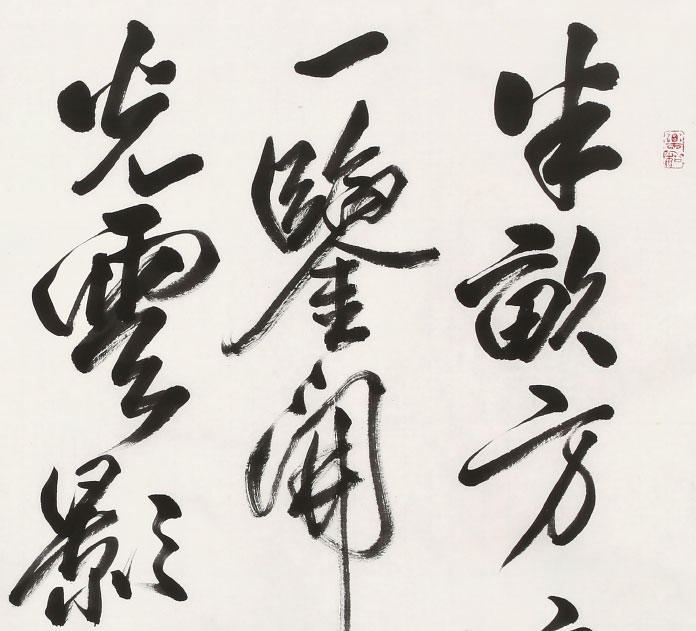 半畝方
一鑒開
光雲影